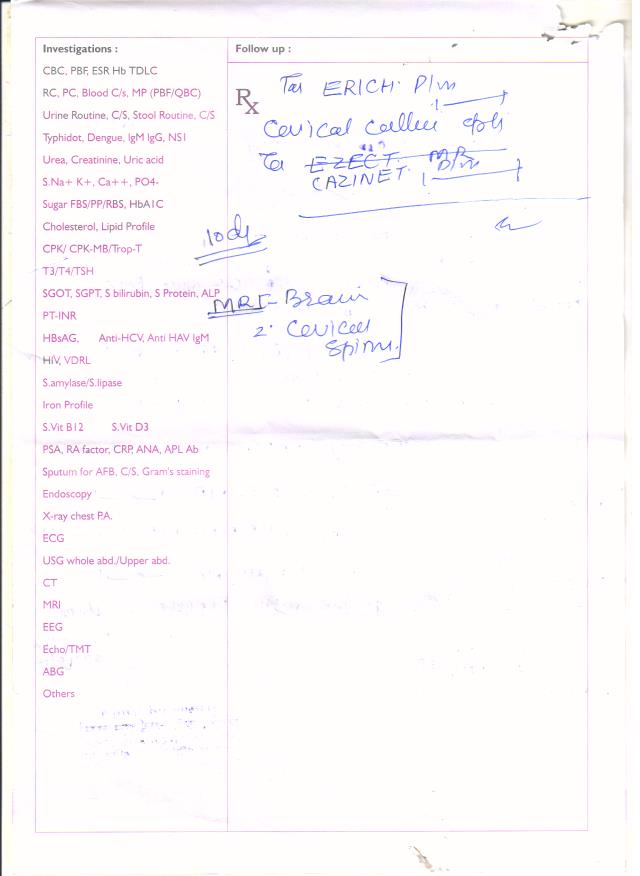 Investigations :
CBC, PBF, ESR Hb TDLC
RC, PC, Blood C/s, MP (PBF/QBC)
Urine Routine, C/S, Stool Routine, C/S
Typhidot, Dengue, IgM IgG, NS1
Urea, Creatinine, Uric acid
S.Na+ K+, Ca++, PO4-
Sugar FBS/PP/RBS, HbA1C
Cholesterol, Lipid Profile
CPK/ CPK-MB/Trop-T
T3/T4/TSH
SGOT, SGPT, S bilirubin, S Protein, ALP
PT-INR
HBsAG, Anti-HCV, Anti HAV IgM
HIV, VDRL
S.amylase/S.lipase
Iron Profile
S.Vit B12 S.Vit D3
PSA, RA factor, CRP, ANA, APL Ab
Sputum for AFB, C/S, Gram's staining
Endoscopy
X-ray chest P.A.
ECG
USG whole abd./Upper abd.
CT
MRI
EEG
Echo/TMT
ABG
Others
Follow up :
Rx
ERICH
Cervical
EZECT
CAZINET
MRI - Brain
2. Cervical
Spine